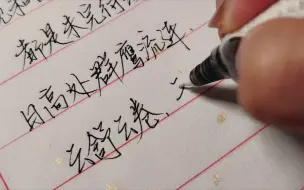 都是未完待
日高处群鹰流连,
云舒云卷,